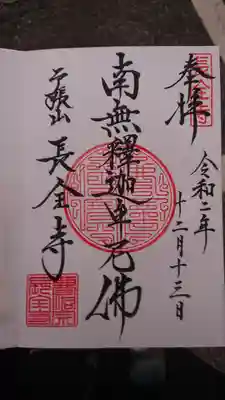 奉拝
令和二年
十二月十三日
南無釋迦牟尼佛
長全寺